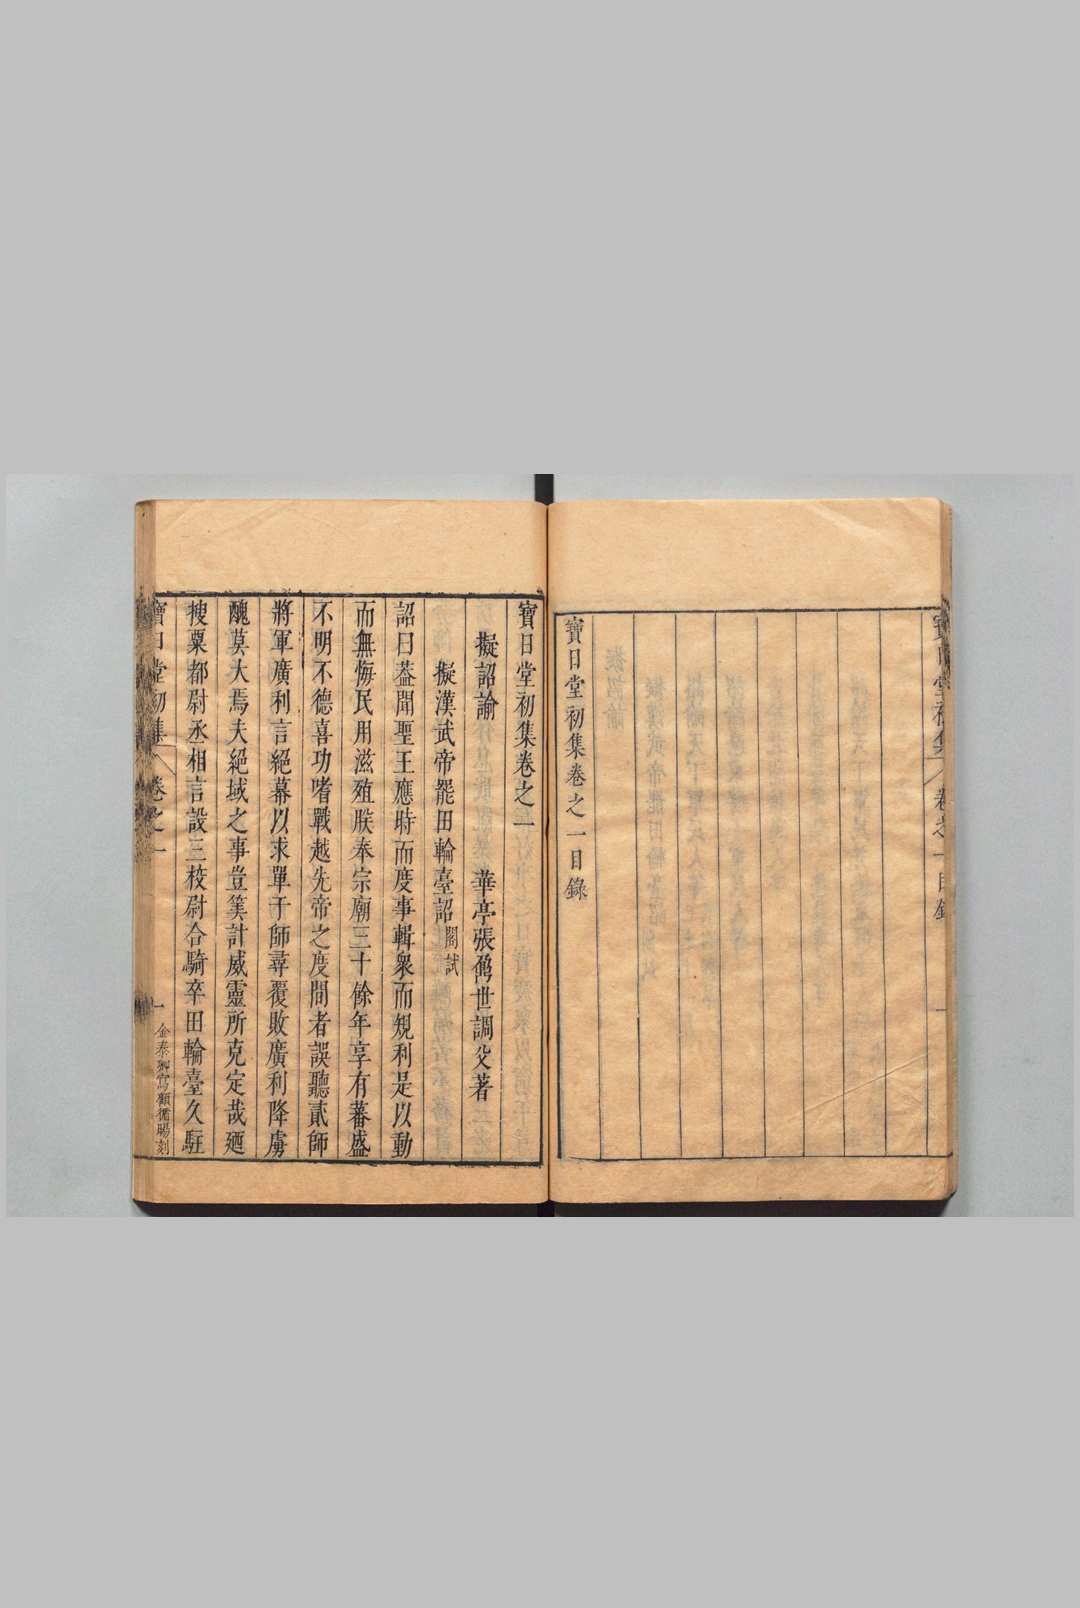 寶日堂初集 卷之一目錄 一
寶日堂初集卷之一目錄
寶日堂初集卷之一
擬詔諭 華亭張鼐世調父著
擬漢武帝罷田輪臺詔 閣試
詔曰葢聞聖王應時而度事輯衆而規利是以動
而無悔民用滋殖朕奉宗廟三十餘年享有蕃盛
不明不德喜功嗜戰越先帝之度間者誤聽貳師
將軍廣利言絕幕以求單于師尋覆敗廣利降虜
醜莫大焉夫絕域之事豈筭計威靈所克定哉廼
搜粟都尉丞相言設三校尉合騎卒田輪臺久駐
寶日堂初集 卷之一 一 金泰卿寫顧循暘刻